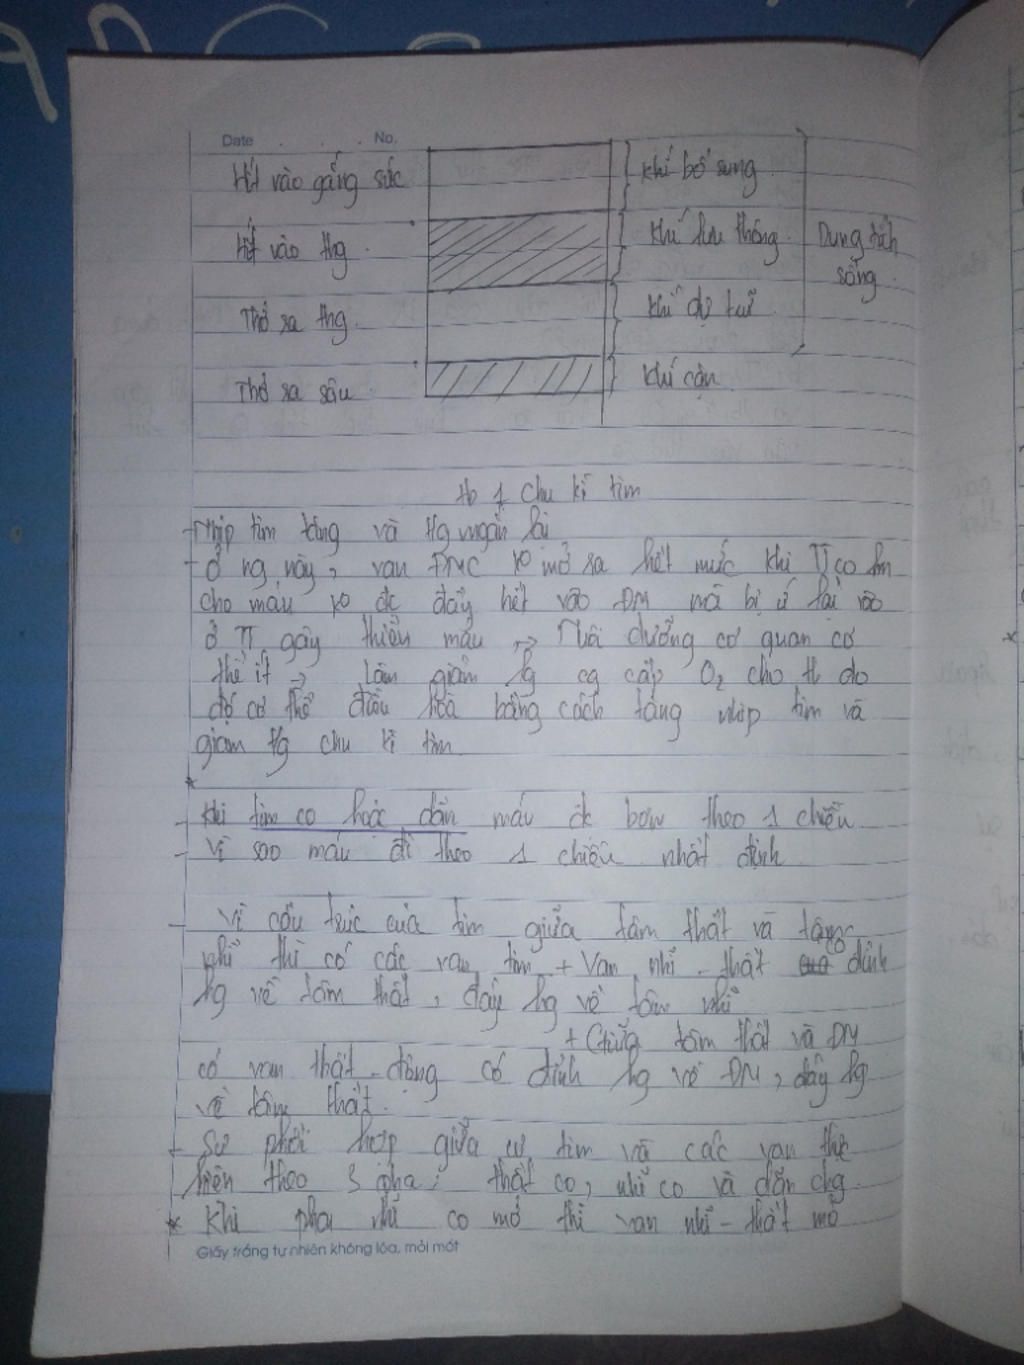 Date . . . . No.
Hít vào gắng sức
khí bổ sung
Hít vào thg.
khí lưu thông.
Dung tích
sống.
Thở sa thg.
khí dự trữ
Thở sa sâu.
khí cặn.
1 chu kì tim
- Nhịp tim tăng và tg ngắn lại
- ở ng này, van ĐMC ko mở sa hết mức khi TT co làm
cho máu ko đc đẩy hết vào ĐM mà bị ứ lại vào
ở TT gây thiếu máu → Nuôi dưỡng cơ quan cơ
thể ít → làm giảm lg cg cấp O2 cho tb do
đó cơ thể điều hoà bằng cách tăng nhịp tim và
giảm tg chu kì tim
*
- Khi tim co hoặc dãn máu đc bơm theo 1 chiều
- Vì sao máu đi theo 1 chiều nhất định
- Vì cấu trúc của tim giữa tâm thất và tâm
nhĩ thì có các van tim + Van nhĩ - thất có đỉnh
hg về tâm thất, đáy hg về tâm nhĩ
+ Giữa tâm thất và ĐM
có van thất - động có đỉnh hg về ĐM, đáy hg
về tâm thất.
+ Sự phối hợp giữa cơ tim và các van thực
hiện theo 3 pha: thất co, nhĩ co và dãn chg
* Khi pha nhĩ co mở thì van nhĩ - thất mở
Giấy trắng tự nhiên không lóa, mỏi mắt